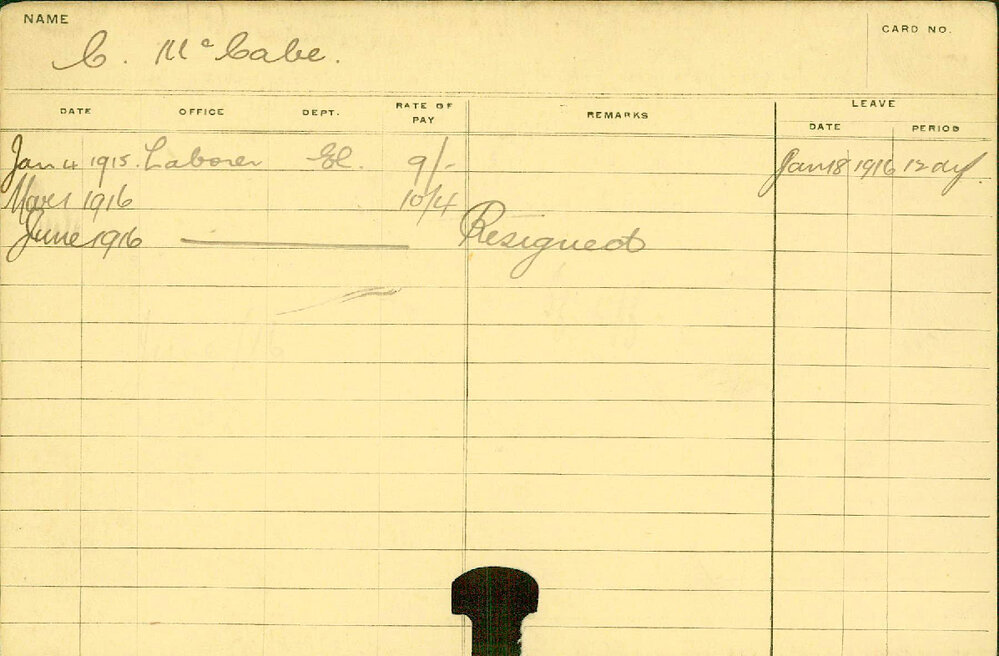 NAME
CARD NO.
C. McCabe.
DATE OFFICE DEPT. RATE OF PAY REMARKS LEAVE
DATE PERIOD
Jan 4 1915. Laborer El. 9/- Jan 18 1916 12 dys.
Mar 1 1916 10/4
June 1916 Resigned